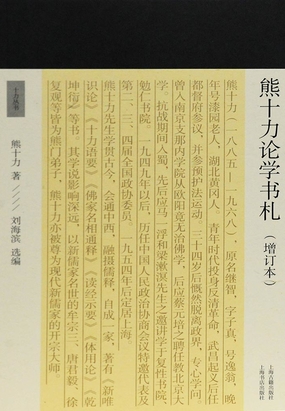 熊十力论学书札
（增订本）
上海古籍出版社
上海书店出版社
熊十力（一八八五—一九六八），原名继智，字子真，号逸翁，晚
年号漆园老人，湖北黄冈人。青年时代投身反清革命，武昌起义后任
都督府参议，并参预护法运动。三十四岁后慨然脱离政界，专心学问，
曾入南京支那内学院从欧阳竟无治佛学。后应蔡元培之聘任教北京大
学。抗战期间入蜀，先后应马一浮和梁漱溟先生之邀讲学于复性书院、
勉仁书院。一九四九年以后，历任中国人民政治协商会议特邀代表及
第二、三、四届全国政协委员。一九五四年后定居上海。
熊十力先生学贯古今，会通中西，融摄儒释，自成一家。著有《新唯
识论》《十力语要》《佛家名相通释》《读经示要》《体用论》《乾
坤衍》等书。其学说影响深远，以新儒学名世的牟宗三、唐君毅、徐
复观等皆为熊门弟子，熊十力亦被尊为现代新儒家的开宗大师。
十力丛书
熊十力 著 //// 刘海滨 选编